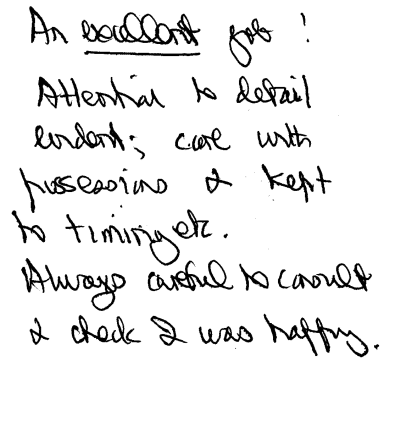 An excellent job !
Attention to detail
evident; care with
possessions & kept
to timing etc.
Always careful to consult
& check I was happy.